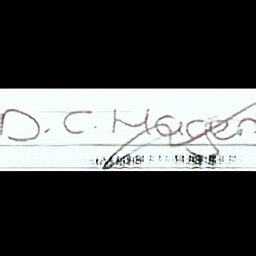 D. C. Hagen